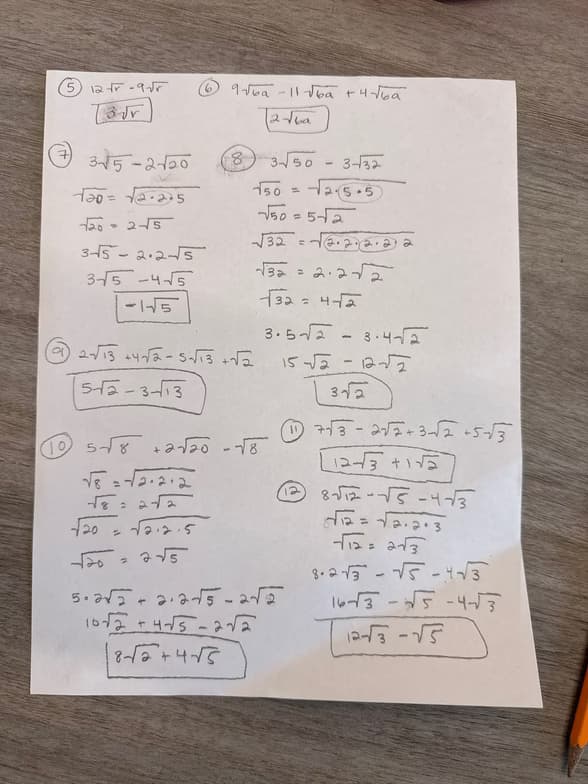 ⑤ 12√r - 9√r
3√r
⑥ 9√6a - 11√6a + 4√6a
2√6a
⑦ 3√5 - 2√20
√20 = √2·2·5
√20 = 2√5
3√5 - 2·2√5
3√5 - 4√5
-1√5
⑧ 3√50 - 3√32
√50 = √2·5·5
√50 = 5√2
√32 = √2·2·2·2·2
√32 = 2·2√2
√32 = 4√2
3·5√2 - 3·4√2
15√2 - 12√2
3√2
⑨ 2√13 + 4√2 - 5√13 + √2
5√2 - 3√13
⑩ 5√8 + 2√20 - √8
√8 = √2·2·2
√8 = 2√2
√20 = √2·2·5
√20 = 2√5
5·2√2 + 2·2√5 - 2√2
10√2 + 4√5 - 2√2
8√2 + 4√5
⑪ 7√3 - 2√2 + 3√2 + 5√3
12√3 + 1√2
⑫ 8√12 - √5 - 4√3
√12 = √2·2·3
√12 = 2√3
8·2√3 - √5 - 4√3
16√3 - √5 - 4√3
12√3 - √5